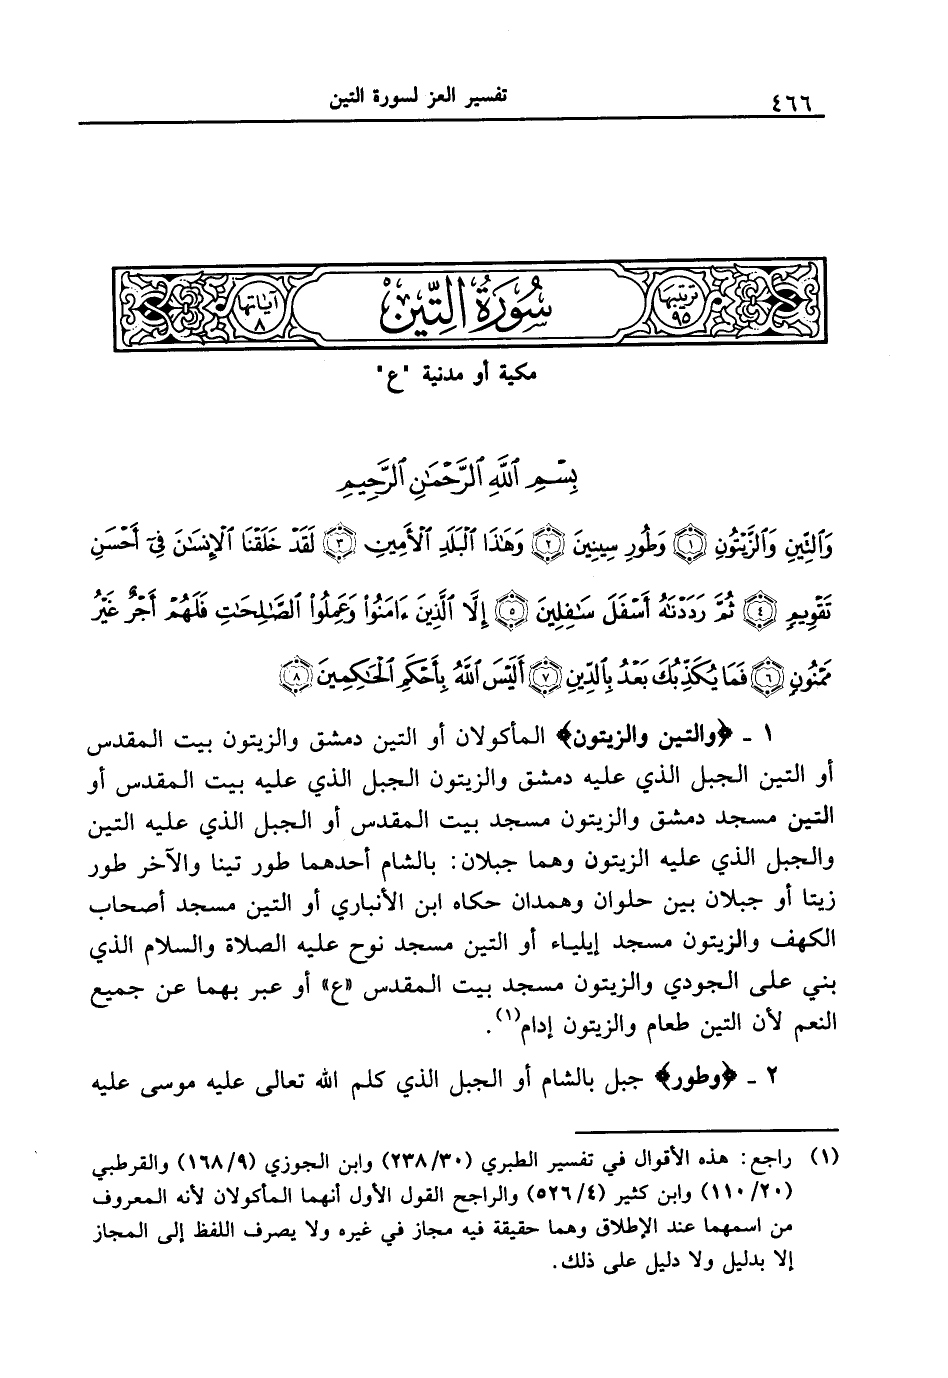 ٤٦٦
تفسير العز لسورة التين
ترتيبها ٩٥
سُورَةُ التِّينِ
آياتها ٨
مكية أو مدنية "ع"
بِسْمِ ٱللَّهِ ٱلرَّحْمَٰنِ ٱلرَّحِيمِ
وَٱلتِّينِ وَٱلزَّيْتُونِ ١ وَطُورِ سِينِينَ ٢ وَهَٰذَا ٱلْبَلَدِ ٱلْأَمِينِ ٣ لَقَدْ خَلَقْنَا ٱلْإِنسَٰنَ فِىٓ أَحْسَنِ
تَقْوِيمٍ ٤ ثُمَّ رَدَدْنَٰهُ أَسْفَلَ سَٰفِلِينَ ٥ إِلَّا ٱلَّذِينَ ءَامَنُوا۟ وَعَمِلُوا۟ ٱلصَّٰلِحَٰتِ فَلَهُمْ أَجْرٌ غَيْرُ
مَمْنُونٍ ٦ فَمَا يُكَذِّبُكَ بَعْدُ بِٱلدِّينِ ٧ أَلَيْسَ ٱللَّهُ بِأَحْكَمِ ٱلْحَٰكِمِينَ ٨
١ ـ ﴿والتين والزيتون﴾ المأكولان أو التين دمشق والزيتون بيت المقدس
أو التين الجبل الذي عليه دمشق والزيتون الجبل الذي عليه بيت المقدس أو
التين مسجد دمشق والزيتون مسجد بيت المقدس أو الجبل الذي عليه التين
والجبل الذي عليه الزيتون وهما جبلان: بالشام أحدهما طور تينا والآخر طور
زيتا أو جبلان بين حلوان وهمدان حكاه ابن الأنباري أو التين مسجد أصحاب
الكهف والزيتون مسجد إيلياء أو التين مسجد نوح عليه الصلاة والسلام الذي
بني على الجودي والزيتون مسجد بيت المقدس «ع» أو عبر بهما عن جميع
النعم لأن التين طعام والزيتون إدام(١).
٢ ـ ﴿وطور﴾ جبل بالشام أو الجبل الذي كلم الله تعالى عليه موسى عليه
(١) راجع: هذه الأقوال في تفسير الطبري (٢٣٨/٣٠) وابن الجوزي (١٦٨/٩) والقرطبي
(١١٠/٢٠) وابن كثير (٥٢٦/٤) والراجح القول الأول أنهما المأكولان لأنه المعروف
من اسمهما عند الإطلاق وهما حقيقة فيه مجاز في غيره ولا يصرف اللفظ إلى المجاز
إلا بدليل ولا دليل على ذلك.